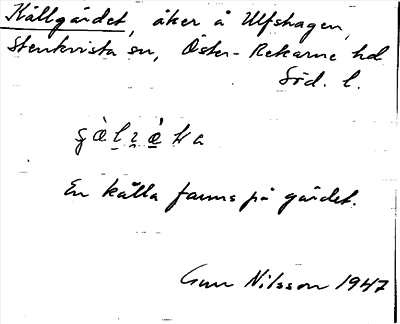 Källgärdet, åker å Ulfshagen,
Stenkvista sn, Öster-Rekarne hd
Söd. l.
En källa fanns på gärdet.
Gun Nilsson 1947